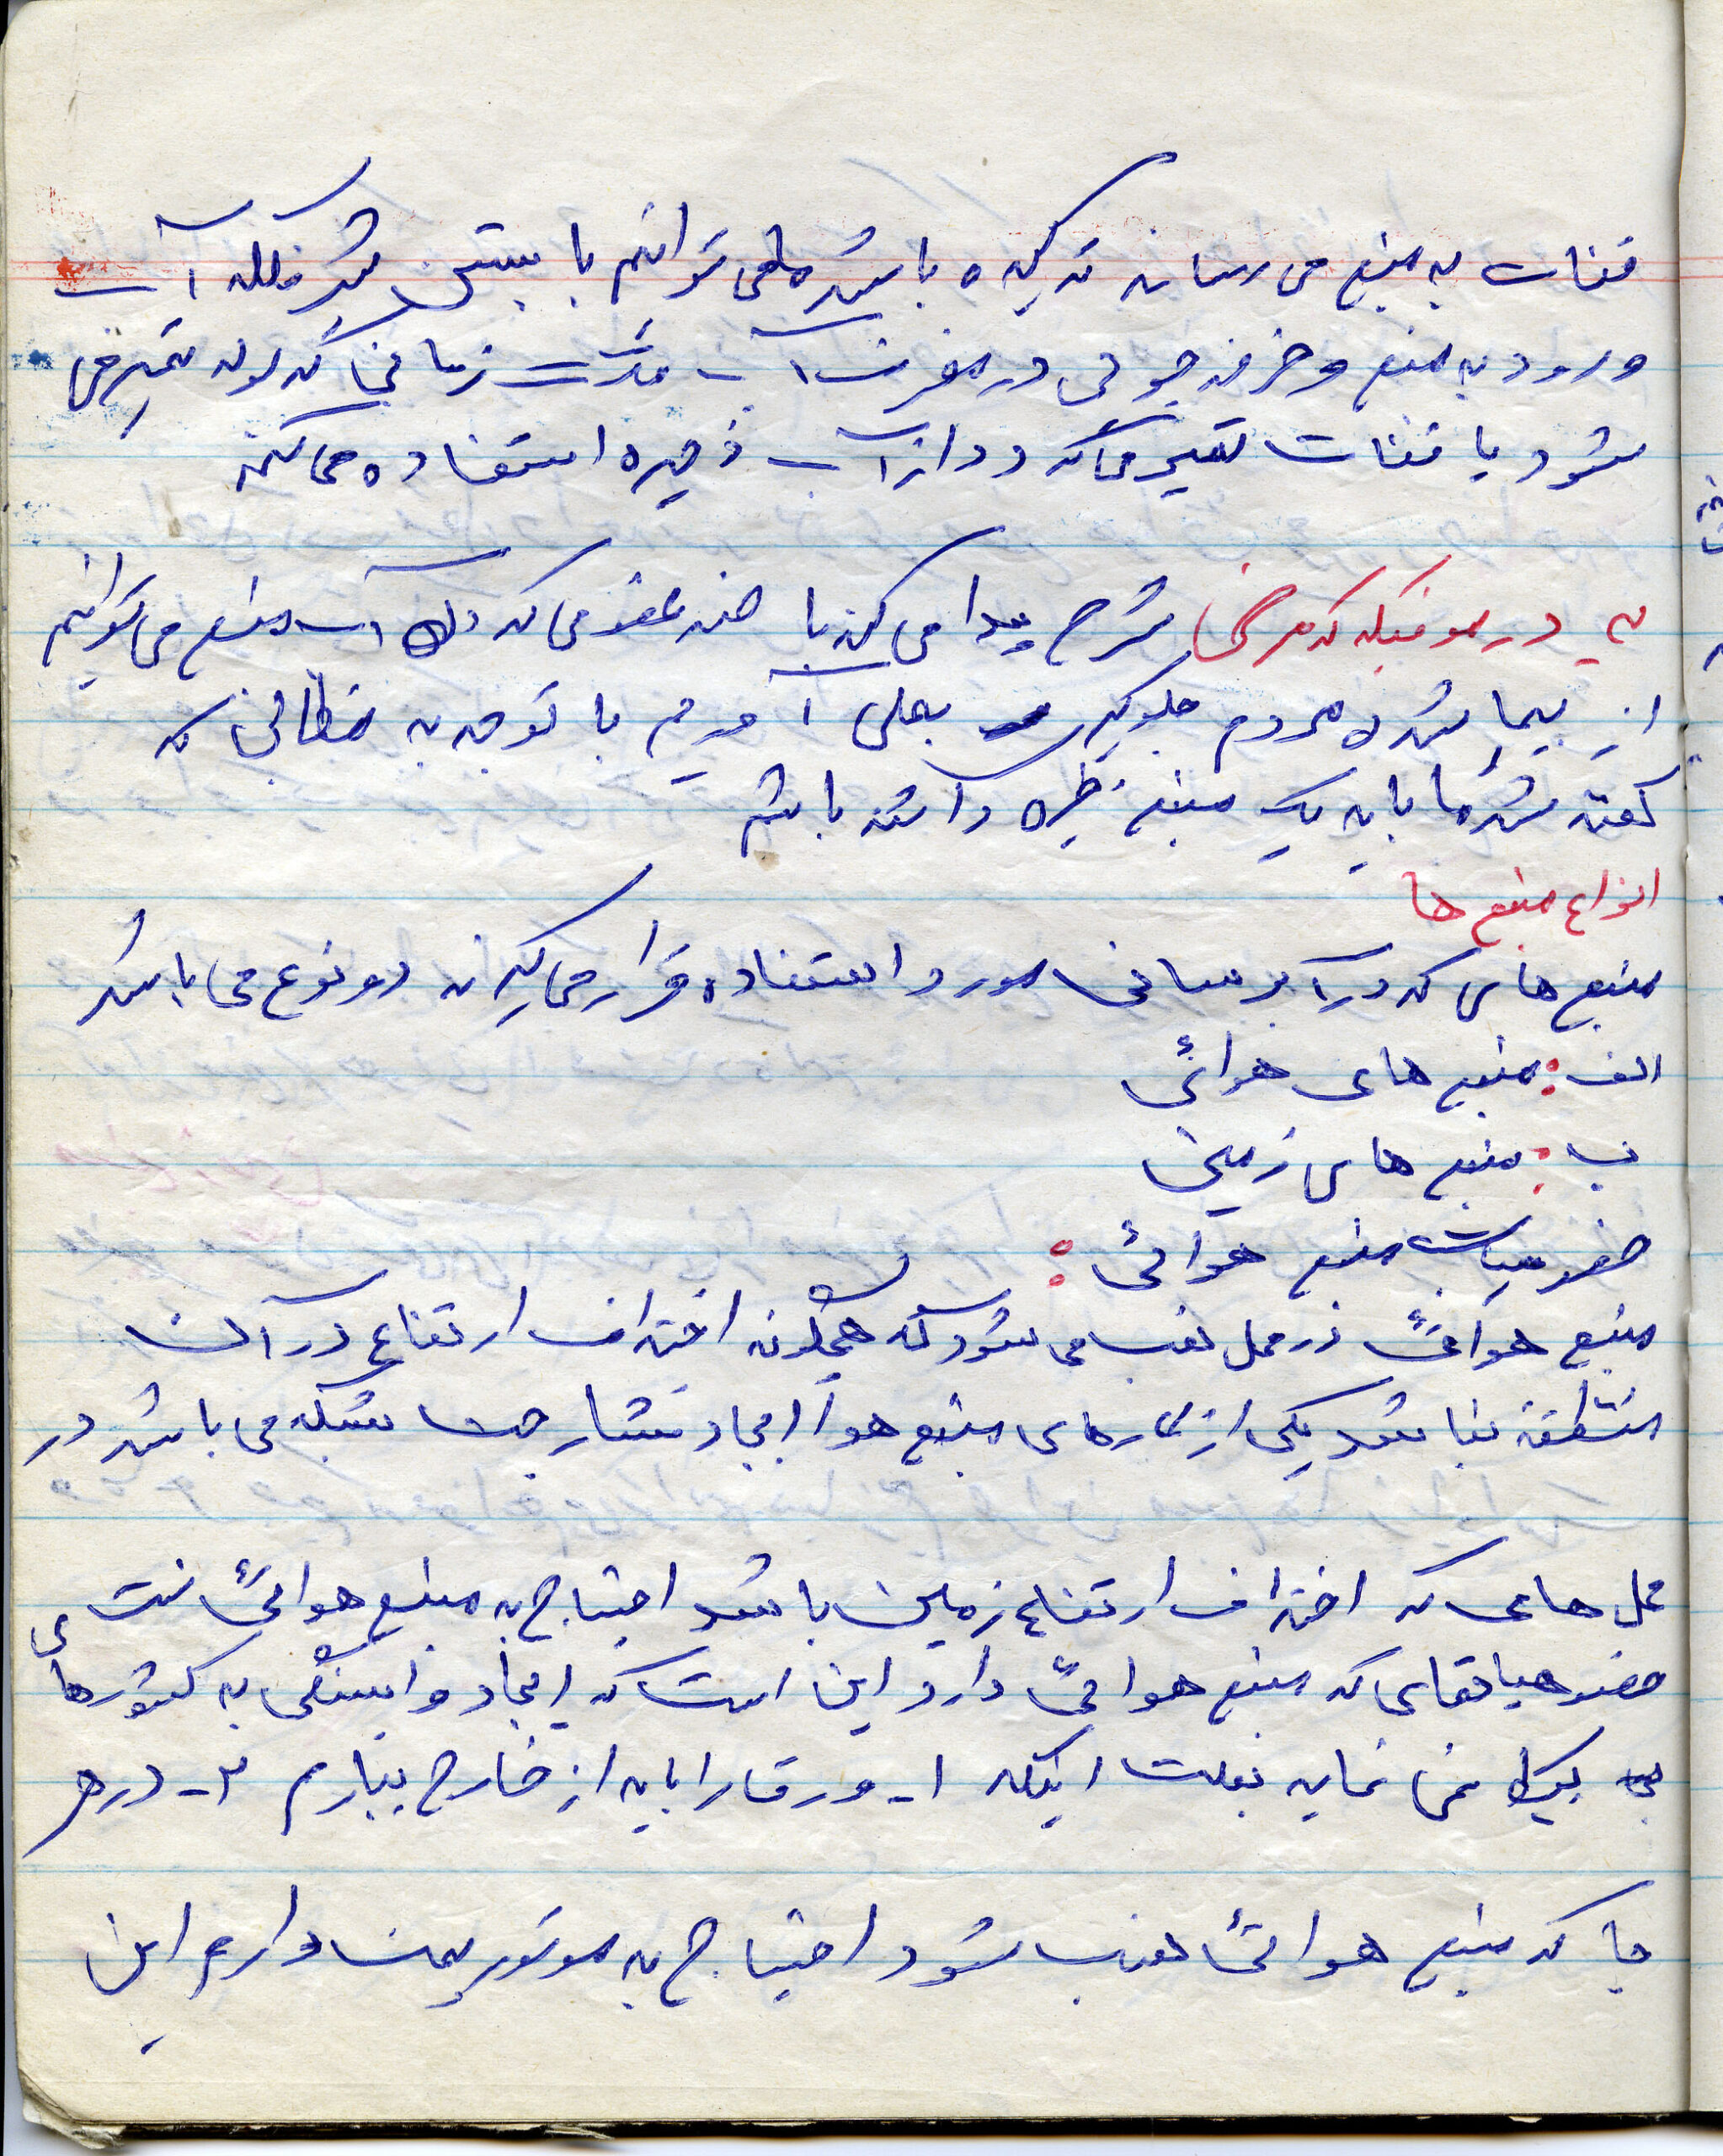 قنات به منبع می رساند ترکیده باشد ما می توانیم با بستن شیر فلکه آب
ورود به منبع و صرفه جوئی در مصرف آب مدت زمانی که لوله تعمیر می
شود یا قنات تعمیر می گردد از آب ذخیره استفاده می کنیم
۳ـ در موقعیکه که مرضی شیوع پیدا می کند با ضد عفونی کردن آب منبع می توانیم
از بیمار شدن مردم جلوگیری بعمل آوریم با توجه به مطالبی که
گفته شد ما باید یک منبع ذخیره داشته باشیم
انواع منبع ها
منبع های که در آبرسانی مورد استفاده قرار می گیرند دو نوع می باشد
الف : منبع های هوائی
ب : منبع های زمینی
خصوصیات منبع هوائی :
منبع هوائی در محل نصب می شود که هیچگونه اختلاف ارتفاع در آن
منطقه نباشد یکی از کارهای منبع هوا ایجاد فشار جهت شبکه می باشد در
محل های که اختلاف ارتفاع زمین باشد احتیاج به منبع هوائی نیست
خصوصیاتهای که منبع هوائی دارد این است که ایجاد وابستگی به کشورهای
نمی نماید بعلت اینکه ۱ـ ورق را باید از خارج بیاریم ۲ـ در هر
جا که منبع هوائی نصب شود احتیاج به موتور پمپ داریم این